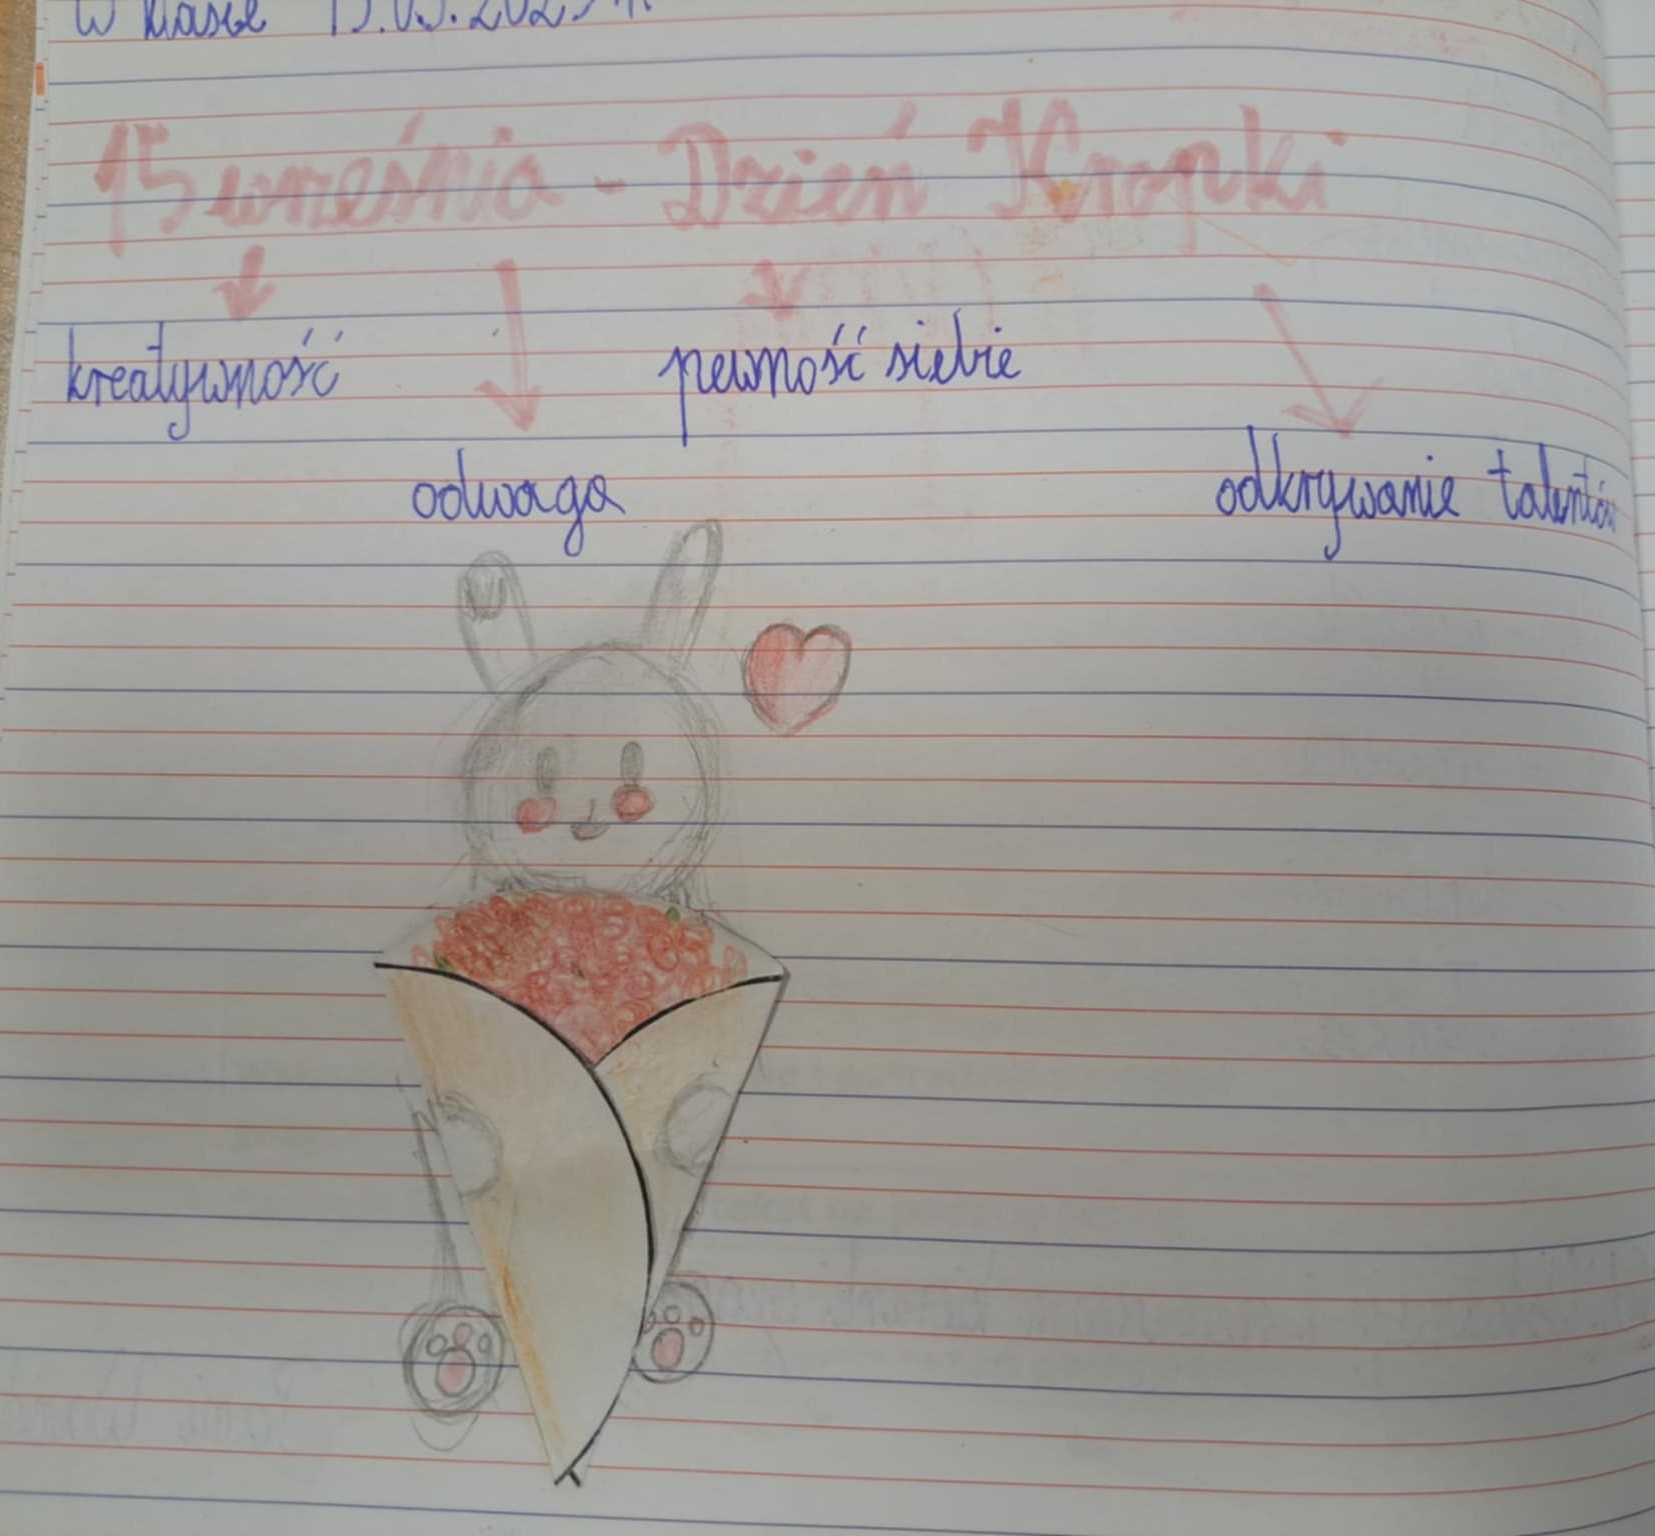 W klasie 15.09.2025 r.
15 września - Dzień Kropki
kreatywność pewność siebie
odwaga odkrywanie talentów